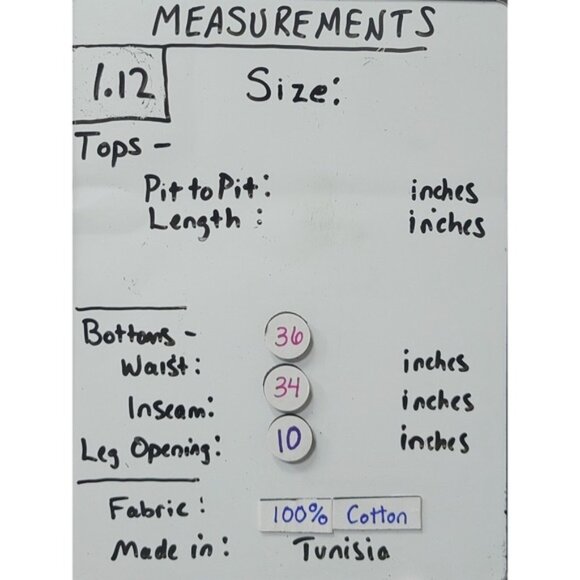 MEASUREMENTS
1.12 Size:
Tops -
Pit to Pit: inches
Length: inches
Bottoms -
Waist: 36 inches
Inseam: 34 inches
Leg Opening: 10 inches
Fabric: 100% Cotton
Made in: Tunisia